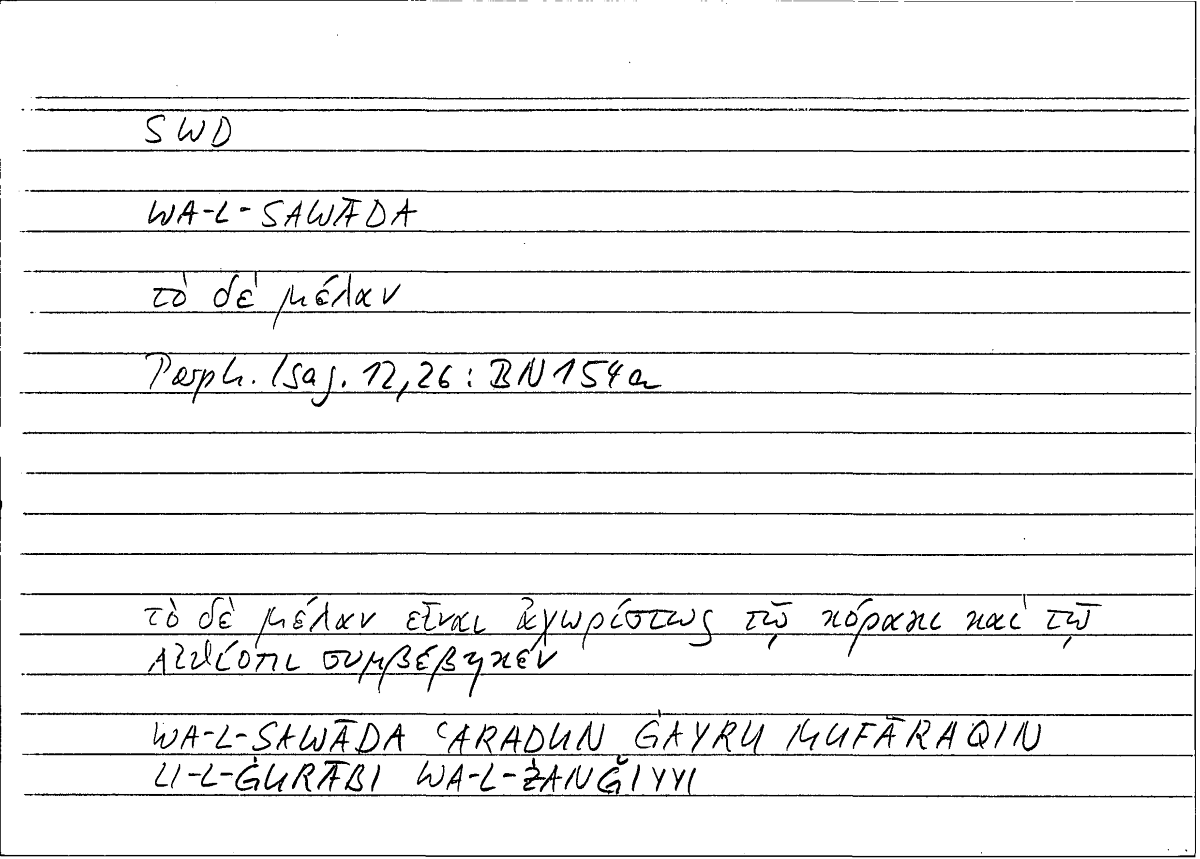 SWD
WA-L-SAWĀDA
τὸ δὲ μέλαν
Porph. Isag. 12,26 : BN 154a
τὸ δὲ μέλαν εἶναι ἀχωρίστως τῷ κόρακι καὶ τῷ
Αἰθίοπι συμβέβηκεν
WA-L-SAWĀDA ʿARADUN ĠAYRU MUFĀRAQIN
LI-L-ĠURĀBI WA-L-ZANǦIYYI